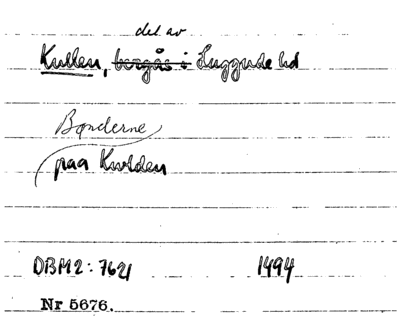 del av
Kullen, bergås i Luggude hd
Bønderne
paa Kulden
DBM2: 7621 1494
Nr 5676.